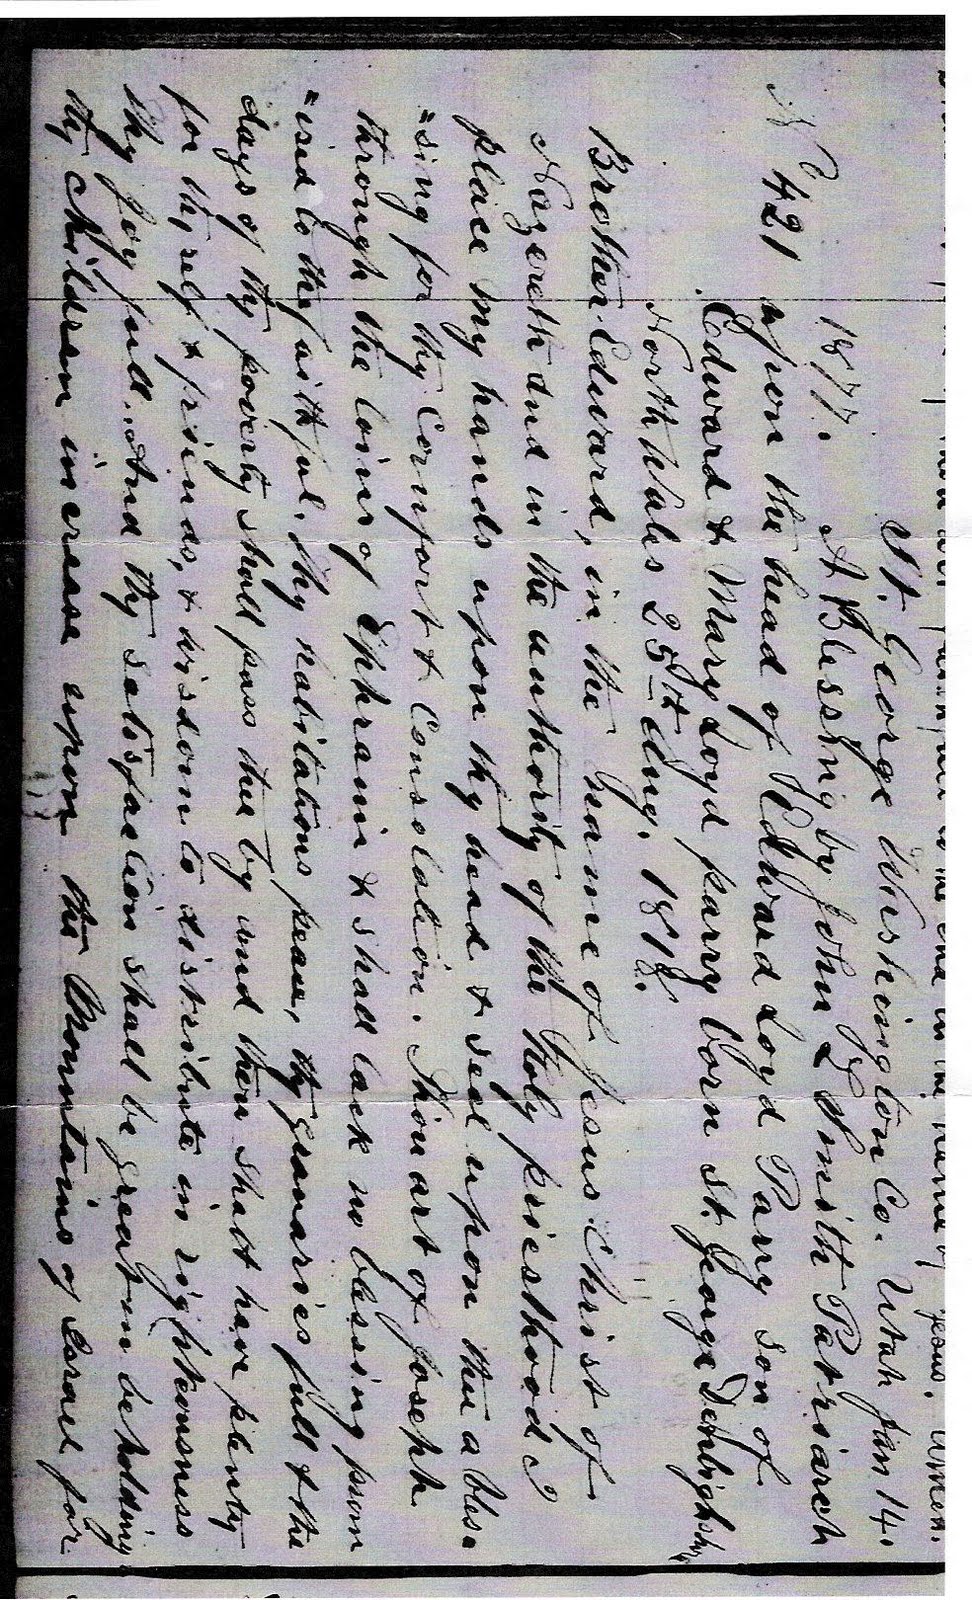 Jesus. Amen.
St. George Washington Co. Utah Jan 14.
1877. A Blessing by John L Smith Patriarch
No 421 upon the head of Edward Loyd Parry son of
Edward & Mary Loyd parry born St. George Denbighshr
North Wales 25th Aug. 1818.
Brother Edward, in the name of Jesus Christ of
Nazereth and in the authority of the Holy priesthood I
place my hands upon thy head & seal upon thee a bles=
=sing for thy Comfort & Consolation. Thou art of Joseph
through the loins of Ephraim & shall lack no blessing prom
=ised to the faithful. thy habitations peace, thy granaries full & the
days of thy poverty shall pass thee by and thou shalt have plenty
for thyself & friends, & wisdom to distribute in righteousness
thy joy full. And thy satisfaction shall be great in beholding
thy children increase upon the Mountains of Israel for